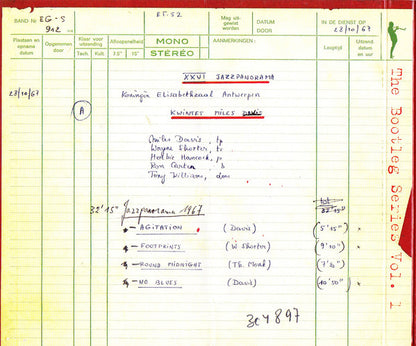 BAND Nr EG-S 912
ET.52
Mag uitgewist worden
DATUM
DOOR
IN DE DIENST OP 28/10/67
Plaatsen en opname datum
Opgenomen door
Klaar voor uitzending
Tech Kult.
Afloopsnelheid
7,5" 15"
MONO
STÉRÉO
AANMERKINGEN:
Looptijd
Uitzend datum en uur
XXVI JAZZPANORAMA
28/10/67
Koningin Elisabethzaal Antwerpen
A
KWINTET MILES DAVIS
Miles Davis, tp
Wayne Shorter, ts
Herbie Hancock, p
Ron Carter, b
Tony Williams, dms
32'45" Jazzpanorama 1967
tot
- AGITATION (Davis) (5'45")
- FOOTPRINTS (W Shorter)
- ROUND MIDNIGHT (Th. Monk)
- NO BLUES (Davis)
The Bootleg Series Vol. 1